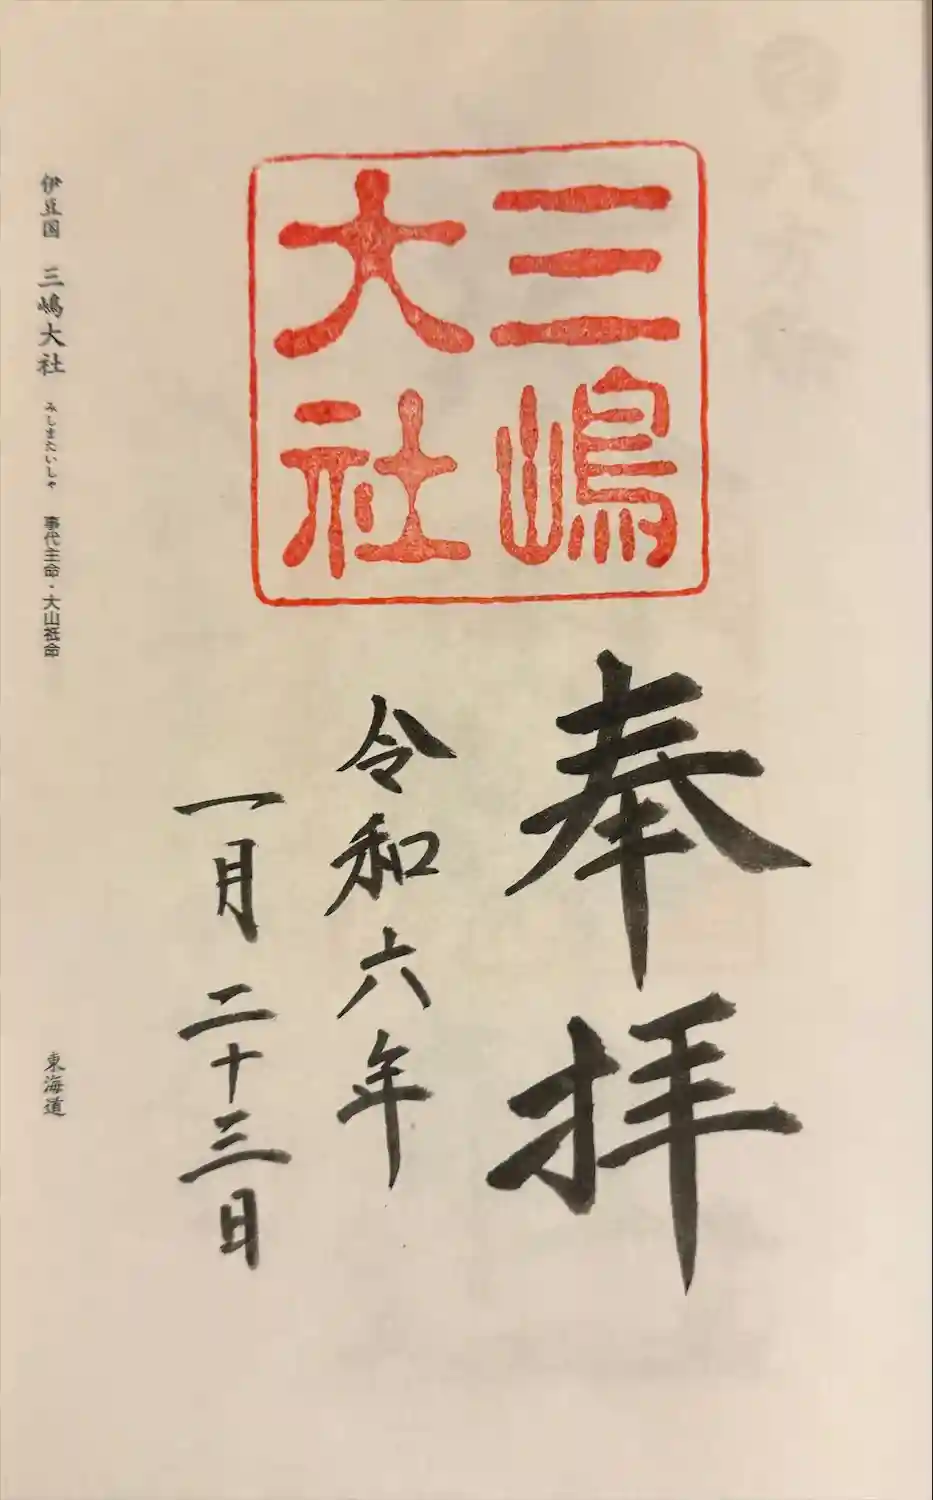 三嶋
大社
奉拝
令和六年
一月二十三日
伊豆国 三嶋大社 みしまたいしゃ 事代主命・大山祇命
東海道